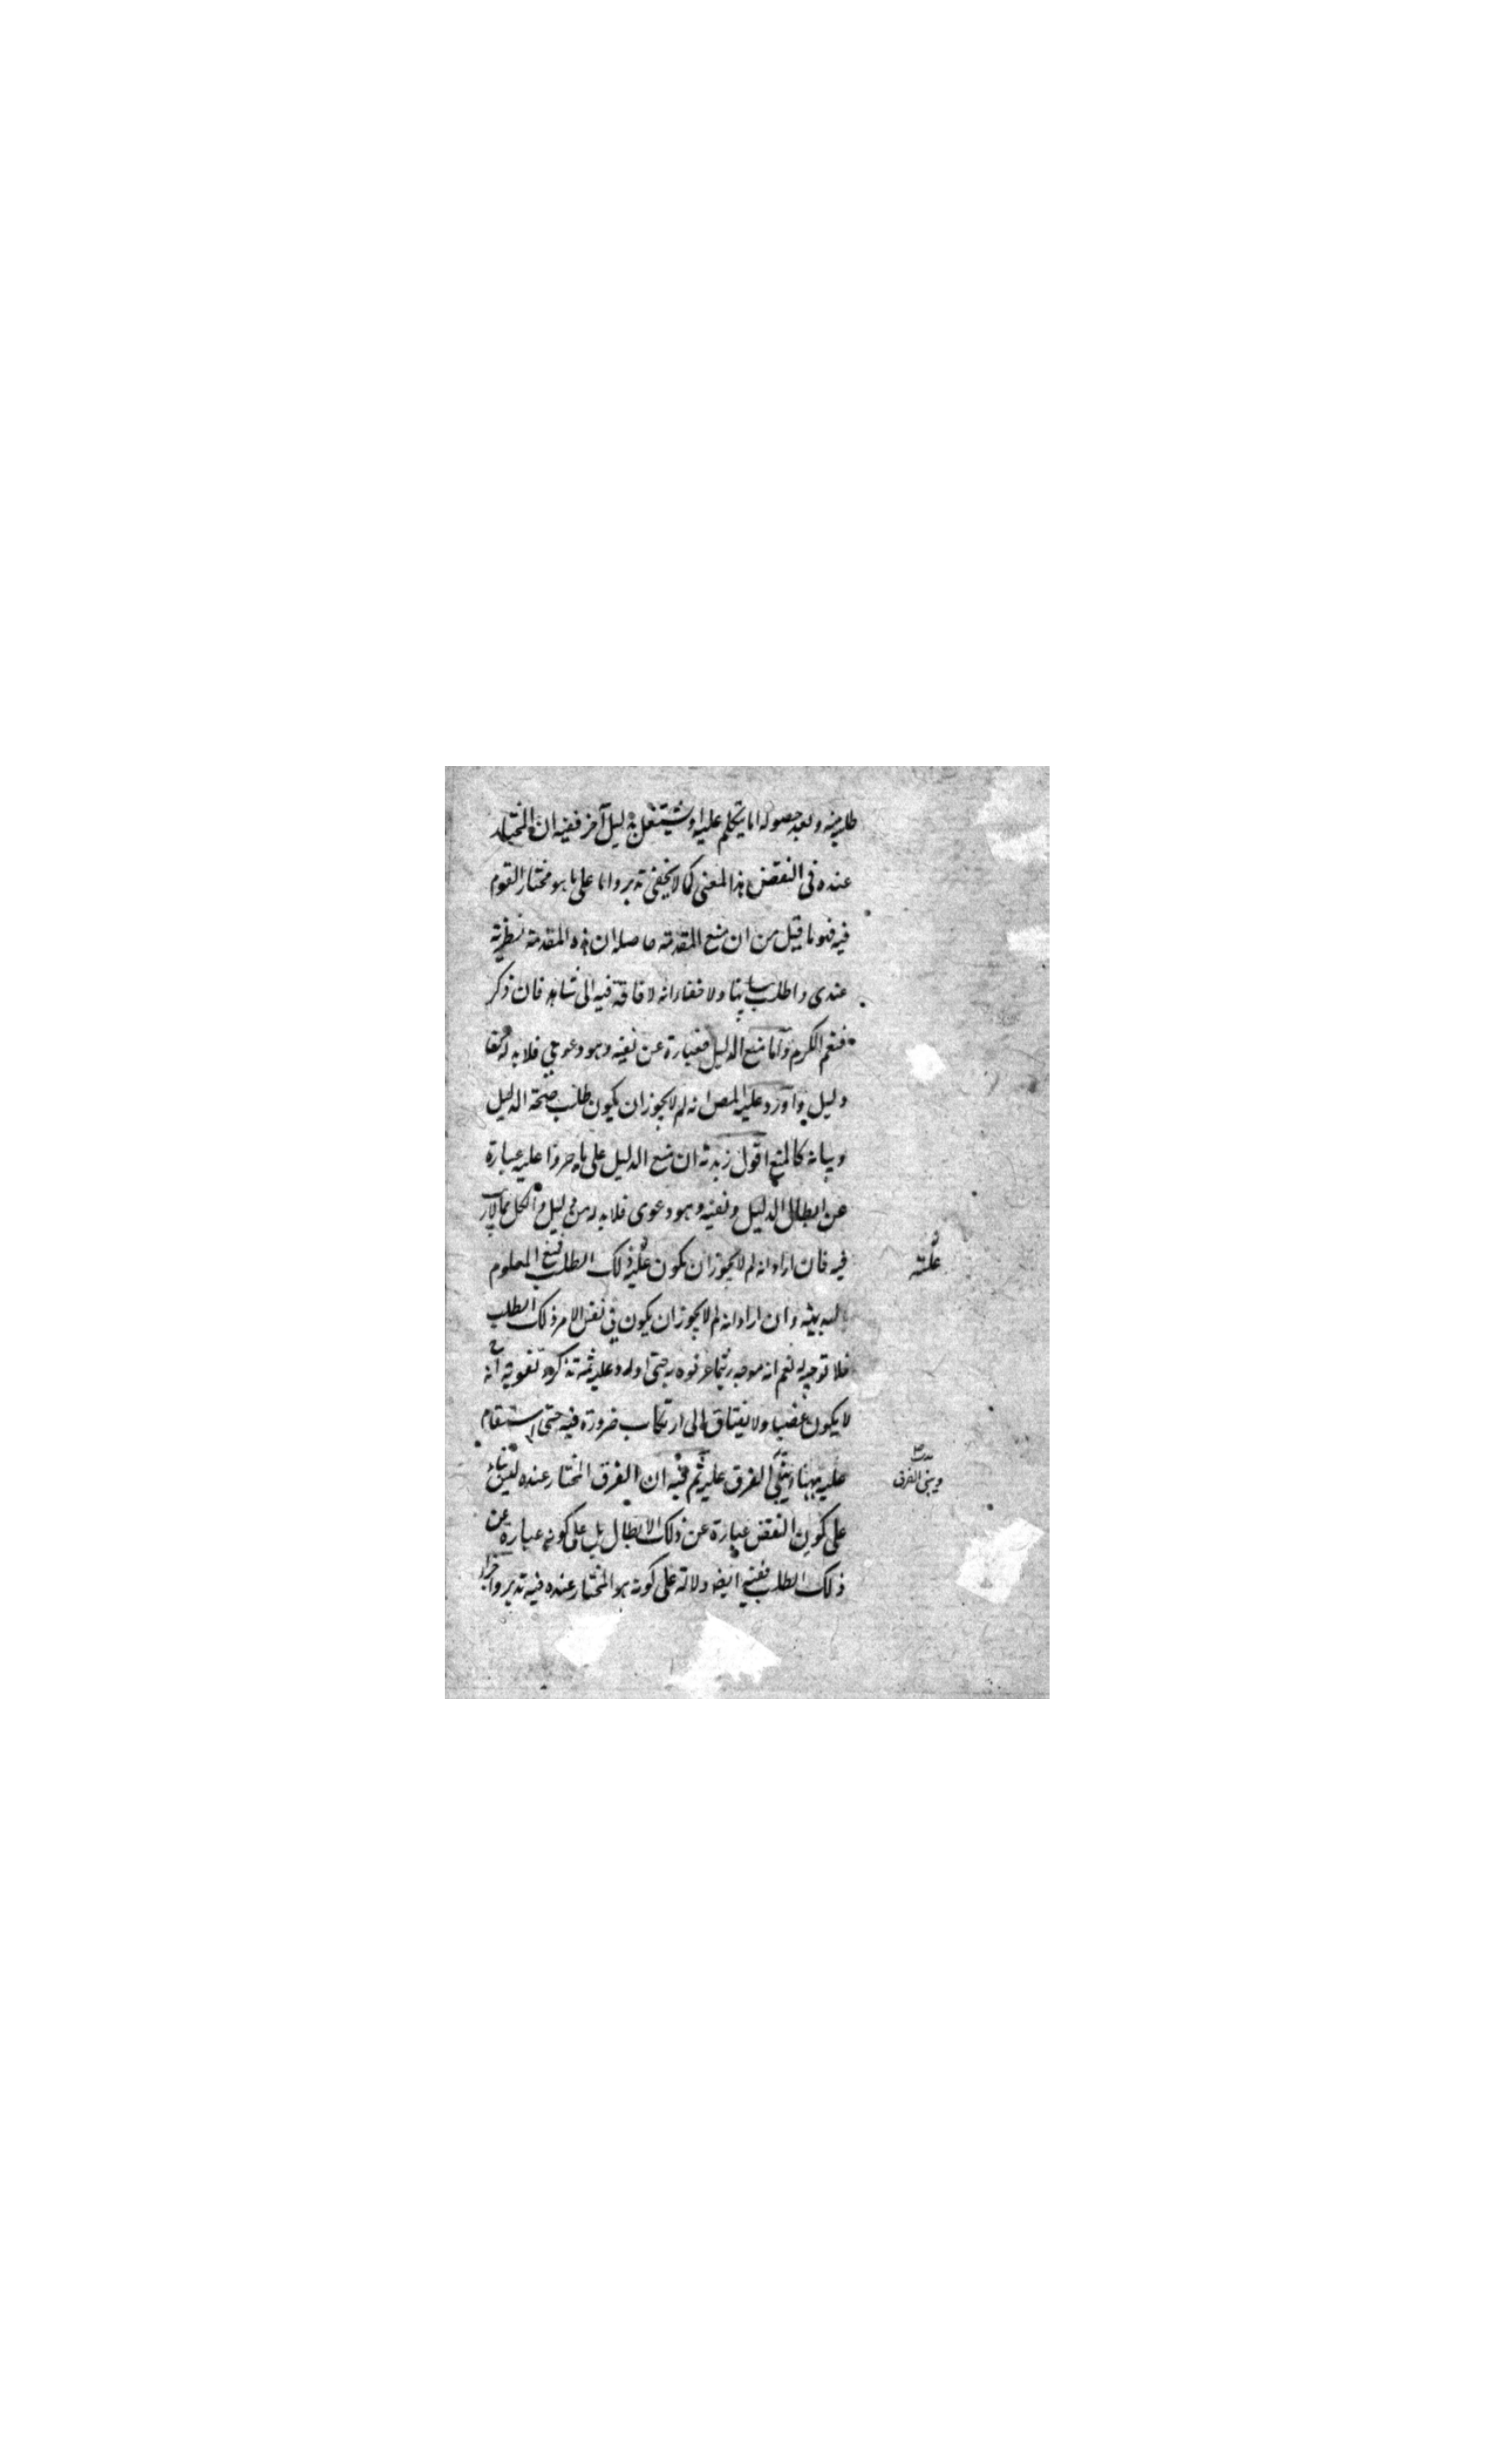 طلبه منه وبعد حصوله اما يتكلم عليه او يشتغل بدليل آخر ففيه ان المختار
عنده في النقض هذا المعنى كما لا يخفى تدبر واما على ما هو مختار القوم
فيه فهو ما قيل من ان منع المقدمة حاصله ان هذه المقدمة نظرية
عندي واطلب بيانها ولا خفاء انه لا فاقة فيه الى شاهد فان ذكر
فنعم الكرم واما منع الدليل فعبارة عن نفيه وهو دعوى فلا بد له
دليل واورد عليه المص انه لم لا يجوز ان يكون طلب صحة الدليل
وبيانه كالمنع اقول زبدته ان منع الدليل على ما حرروا عليه عبارة
عن ابطال الدليل ونفيه وهو دعوى فلا بد له من دليل والكل مما لا ريب
فيه فان اراد انه لم لا يجوز ان يكون عليه ذلك الطلب فمنع المعلوم
بالبديهة وان اراد انه لم لا يجوز ان يكون في نفس الامر ذلك الطلب
فلا توجيه له نعم انه موجه
لا يكون غصبا ولا يفتاق الى ارتكاب ضرورة فيه حتى استقام
عليه ههنا الفرق عليه ثم فيه ان الفرق المختار عنده ليس بناء
على كون النقض عبارة عن ذلك الابطال بل على كونه عبارة عن
ذلك الطلب ففيه ايضا دلالة على كونه هو المختار عنده فيه تدبر
علته
ويبني الفرق